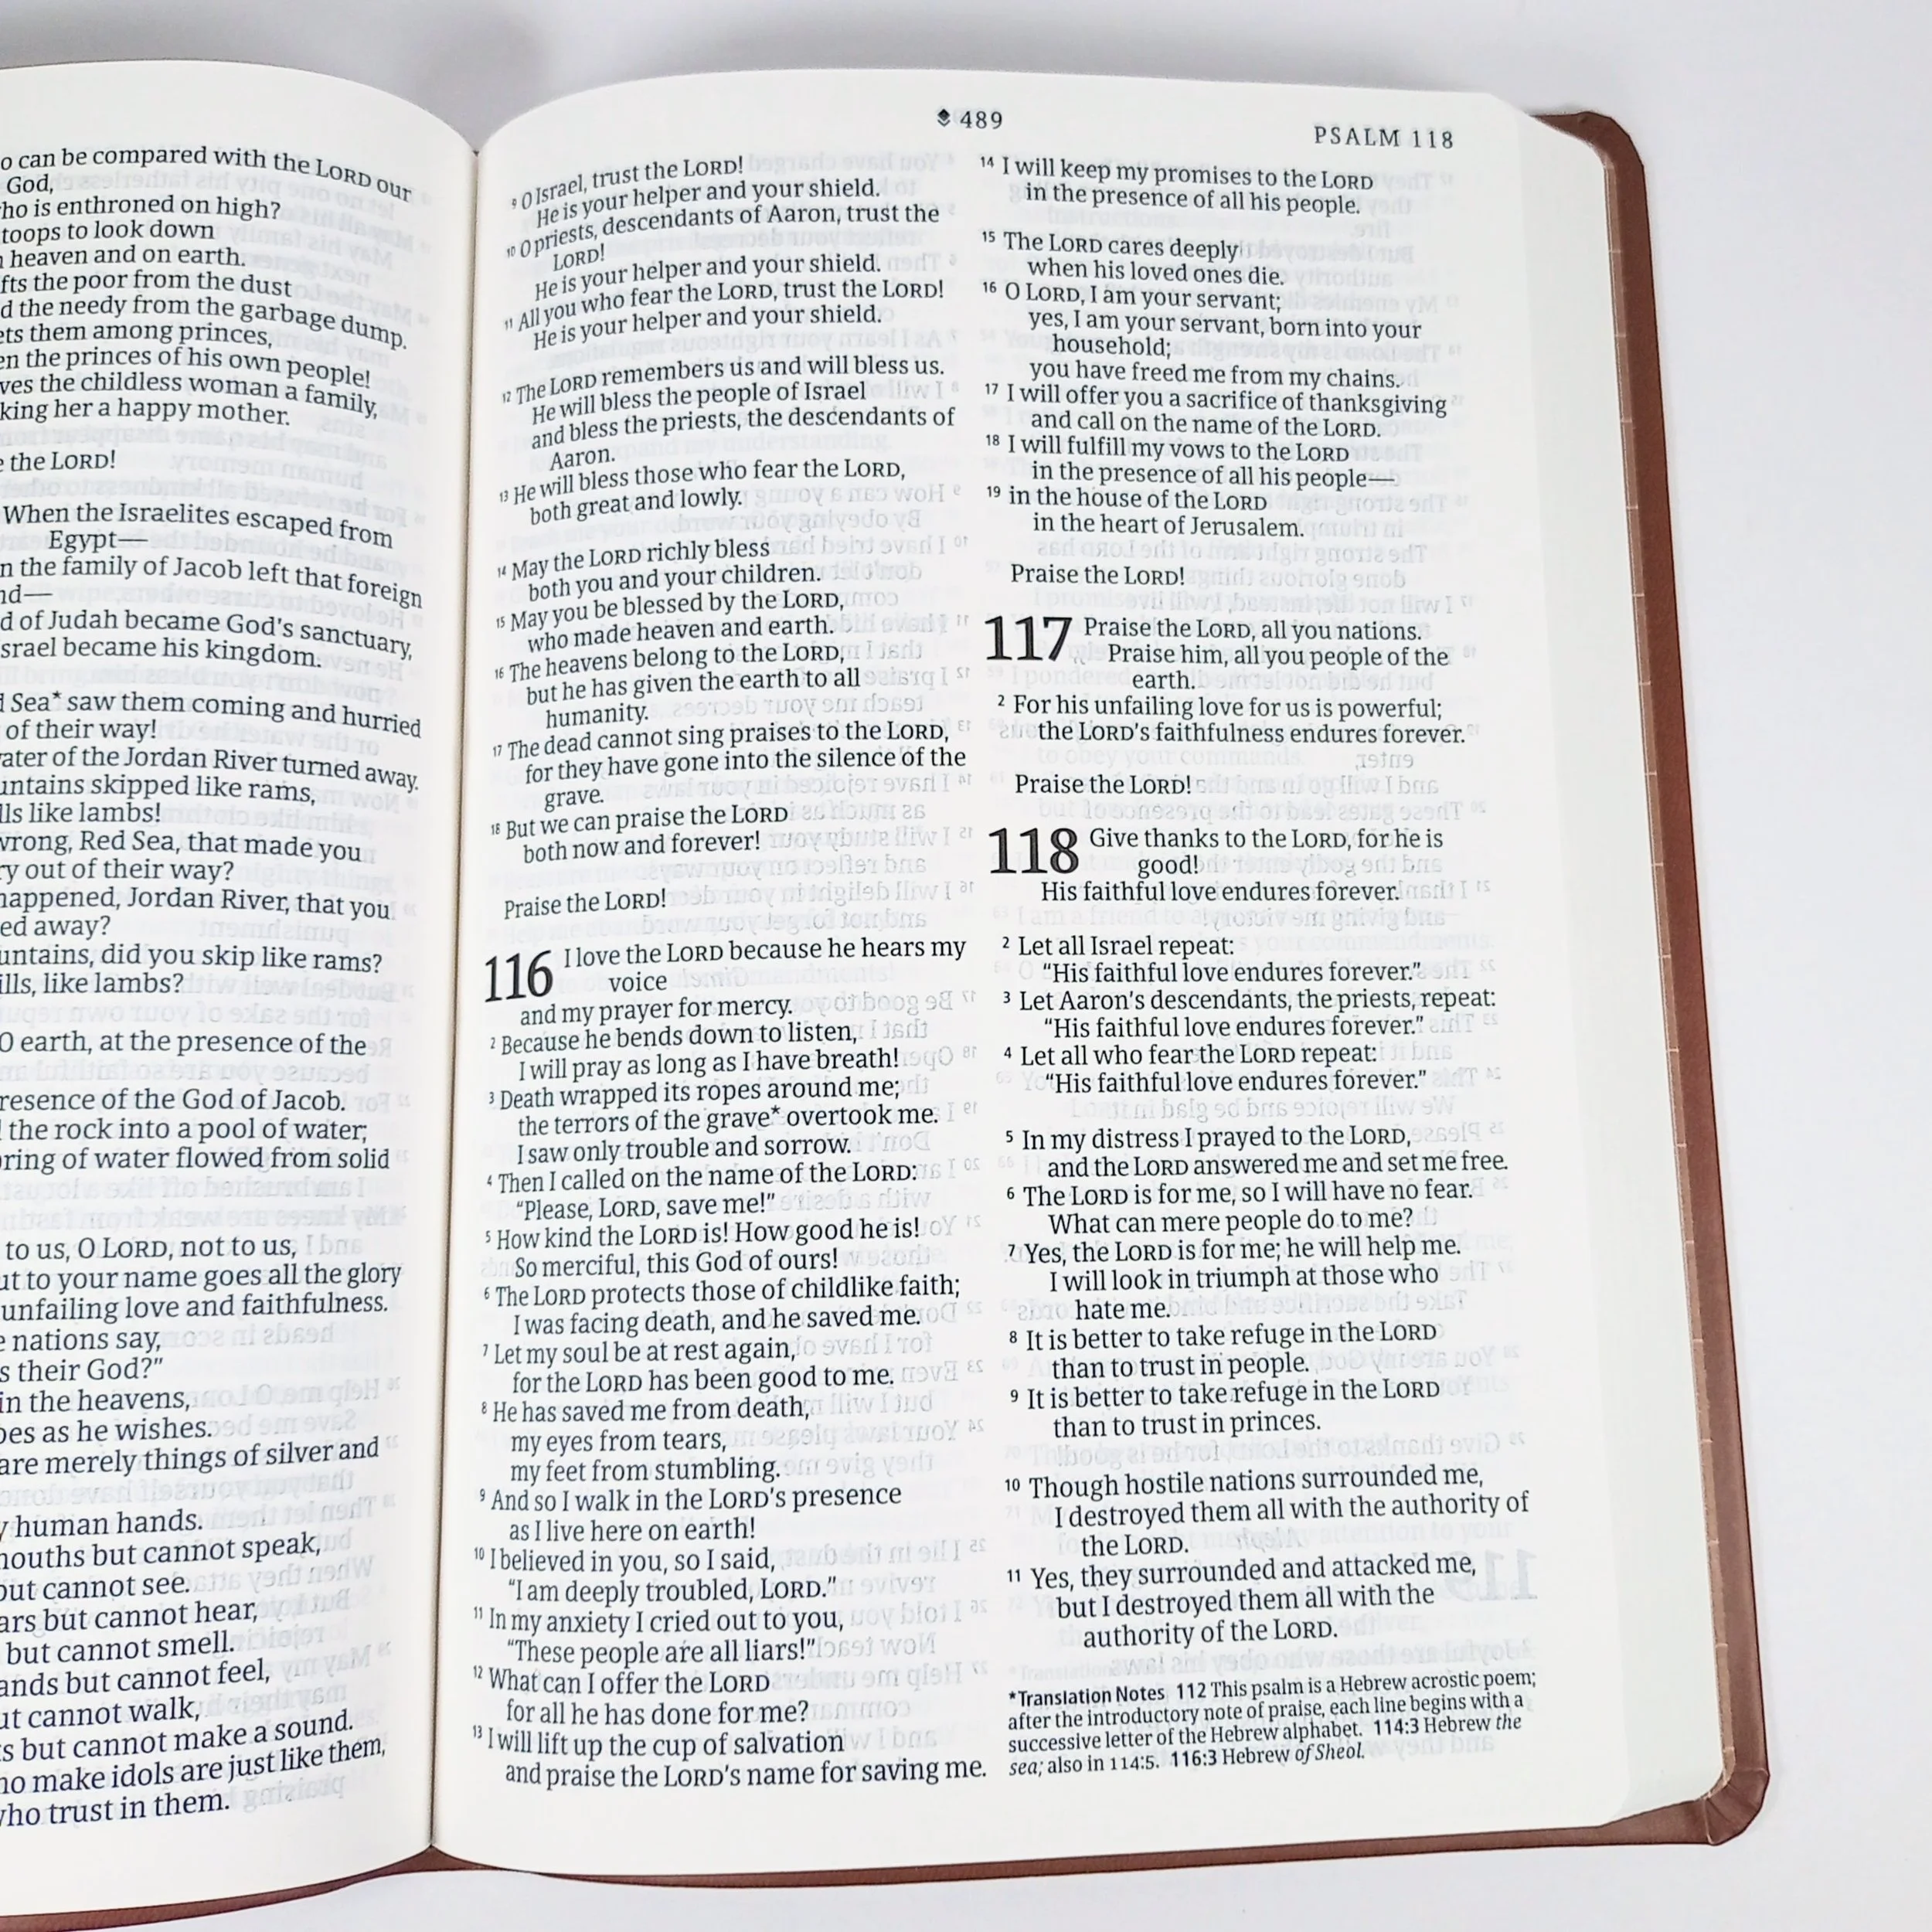 o can be compared with the LORD our
God,
ho is enthroned on high?
toops to look down
heaven and on earth.
fts the poor from the dust
d the needy from the garbage dump.
ets them among princes,
en the princes of his own people!
ves the childless woman a family,
king her a happy mother.
the LORD!
When the Israelites escaped from
Egypt—
n the family of Jacob left that foreign
nd—
d of Judah became God's sanctuary,
srael became his kingdom.
Sea* saw them coming and hurried
of their way!
ater of the Jordan River turned away.
untains skipped like rams,
lls like lambs!
wrong, Red Sea, that made you
ry out of their way?
happened, Jordan River, that you
ed away?
untains, did you skip like rams?
ills, like lambs?
O earth, at the presence of the
resence of the God of Jacob.
the rock into a pool of water;
pring of water flowed from solid
to us, O LORD, not to us,
ut to your name goes all the glory
unfailing love and faithfulness.
e nations say,
s their God?"
in the heavens,
oes as he wishes.
are merely things of silver and
y human hands.
mouths but cannot speak,
but cannot see.
ars but cannot hear,
but cannot smell.
ands but cannot feel,
ut cannot walk,
s but cannot make a sound.
ho make idols are just like them,
who trust in them.
489
PSALM 118
9 O Israel, trust the LORD!
He is your helper and your shield.
10 O priests, descendants of Aaron, trust the
LORD!
He is your helper and your shield.
11 All you who fear the LORD, trust the LORD!
He is your helper and your shield.
12 The LORD remembers us and will bless us.
He will bless the people of Israel
and bless the priests, the descendants of
Aaron.
13 He will bless those who fear the LORD,
both great and lowly.
14 May the LORD richly bless
both you and your children.
15 May you be blessed by the LORD,
who made heaven and earth.
16 The heavens belong to the LORD,
but he has given the earth to all
humanity.
17 The dead cannot sing praises to the LORD,
for they have gone into the silence of the
grave.
18 But we can praise the LORD
both now and forever!
Praise the LORD!
116 I love the LORD because he hears my
voice
and my prayer for mercy.
2 Because he bends down to listen,
I will pray as long as I have breath!
3 Death wrapped its ropes around me;
the terrors of the grave* overtook me.
I saw only trouble and sorrow.
4 Then I called on the name of the LORD:
"Please, LORD, save me!"
5 How kind the LORD is! How good he is!
So merciful, this God of ours!
6 The LORD protects those of childlike faith;
I was facing death, and he saved me.
7 Let my soul be at rest again,
for the LORD has been good to me.
8 He has saved me from death,
my eyes from tears,
my feet from stumbling.
9 And so I walk in the LORD's presence
as I live here on earth!
10 I believed in you, so I said,
"I am deeply troubled, LORD."
11 In my anxiety I cried out to you,
"These people are all liars!"
12 What can I offer the LORD
for all he has done for me?
13 I will lift up the cup of salvation
and praise the LORD's name for saving me.
14 I will keep my promises to the LORD
in the presence of all his people.
15 The LORD cares deeply
when his loved ones die.
16 O LORD, I am your servant;
yes, I am your servant, born into your
household;
you have freed me from my chains.
17 I will offer you a sacrifice of thanksgiving
and call on the name of the LORD.
18 I will fulfill my vows to the LORD
in the presence of all his people—
19 in the house of the LORD
in the heart of Jerusalem.
Praise the LORD!
117 Praise the LORD, all you nations.
Praise him, all you people of the
earth.
2 For his unfailing love for us is powerful;
the LORD's faithfulness endures forever.
Praise the LORD!
118 Give thanks to the LORD, for he is
good!
His faithful love endures forever.
2 Let all Israel repeat:
"His faithful love endures forever."
3 Let Aaron's descendants, the priests, repeat:
"His faithful love endures forever."
4 Let all who fear the LORD repeat:
"His faithful love endures forever."
5 In my distress I prayed to the LORD,
and the LORD answered me and set me free.
6 The LORD is for me, so I will have no fear.
What can mere people do to me?
7 Yes, the LORD is for me; he will help me.
I will look in triumph at those who
hate me.
8 It is better to take refuge in the LORD
than to trust in people.
9 It is better to take refuge in the LORD
than to trust in princes.
10 Though hostile nations surrounded me,
I destroyed them all with the authority of
the LORD.
11 Yes, they surrounded and attacked me,
but I destroyed them all with the
authority of the LORD.
*Translation Notes 112 This psalm is a Hebrew acrostic poem;
after the introductory note of praise, each line begins with a
successive letter of the Hebrew alphabet. 114:3 Hebrew the
sea; also in 114:5. 116:3 Hebrew of Sheol.